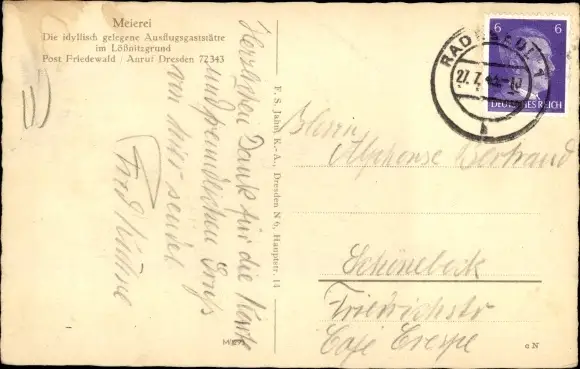 Meierei
Die idyllisch gelegene Ausflugsgaststätte
im Lößnitzgrund
Post Friedewald / Anruf Dresden 72343
Herzlichen Dank für die Karte
und freundlichen Gruß
von mir sendet
F. S. Jahn, K.-A., Dresden N 6, Hauptstr. 14
6 6
DEUTSCHES REICH
RADEBEUL 1
27.7.
Herrn
Alphonse Bertrand
Schönebeck
Friedrichstr
Cafe Crespe